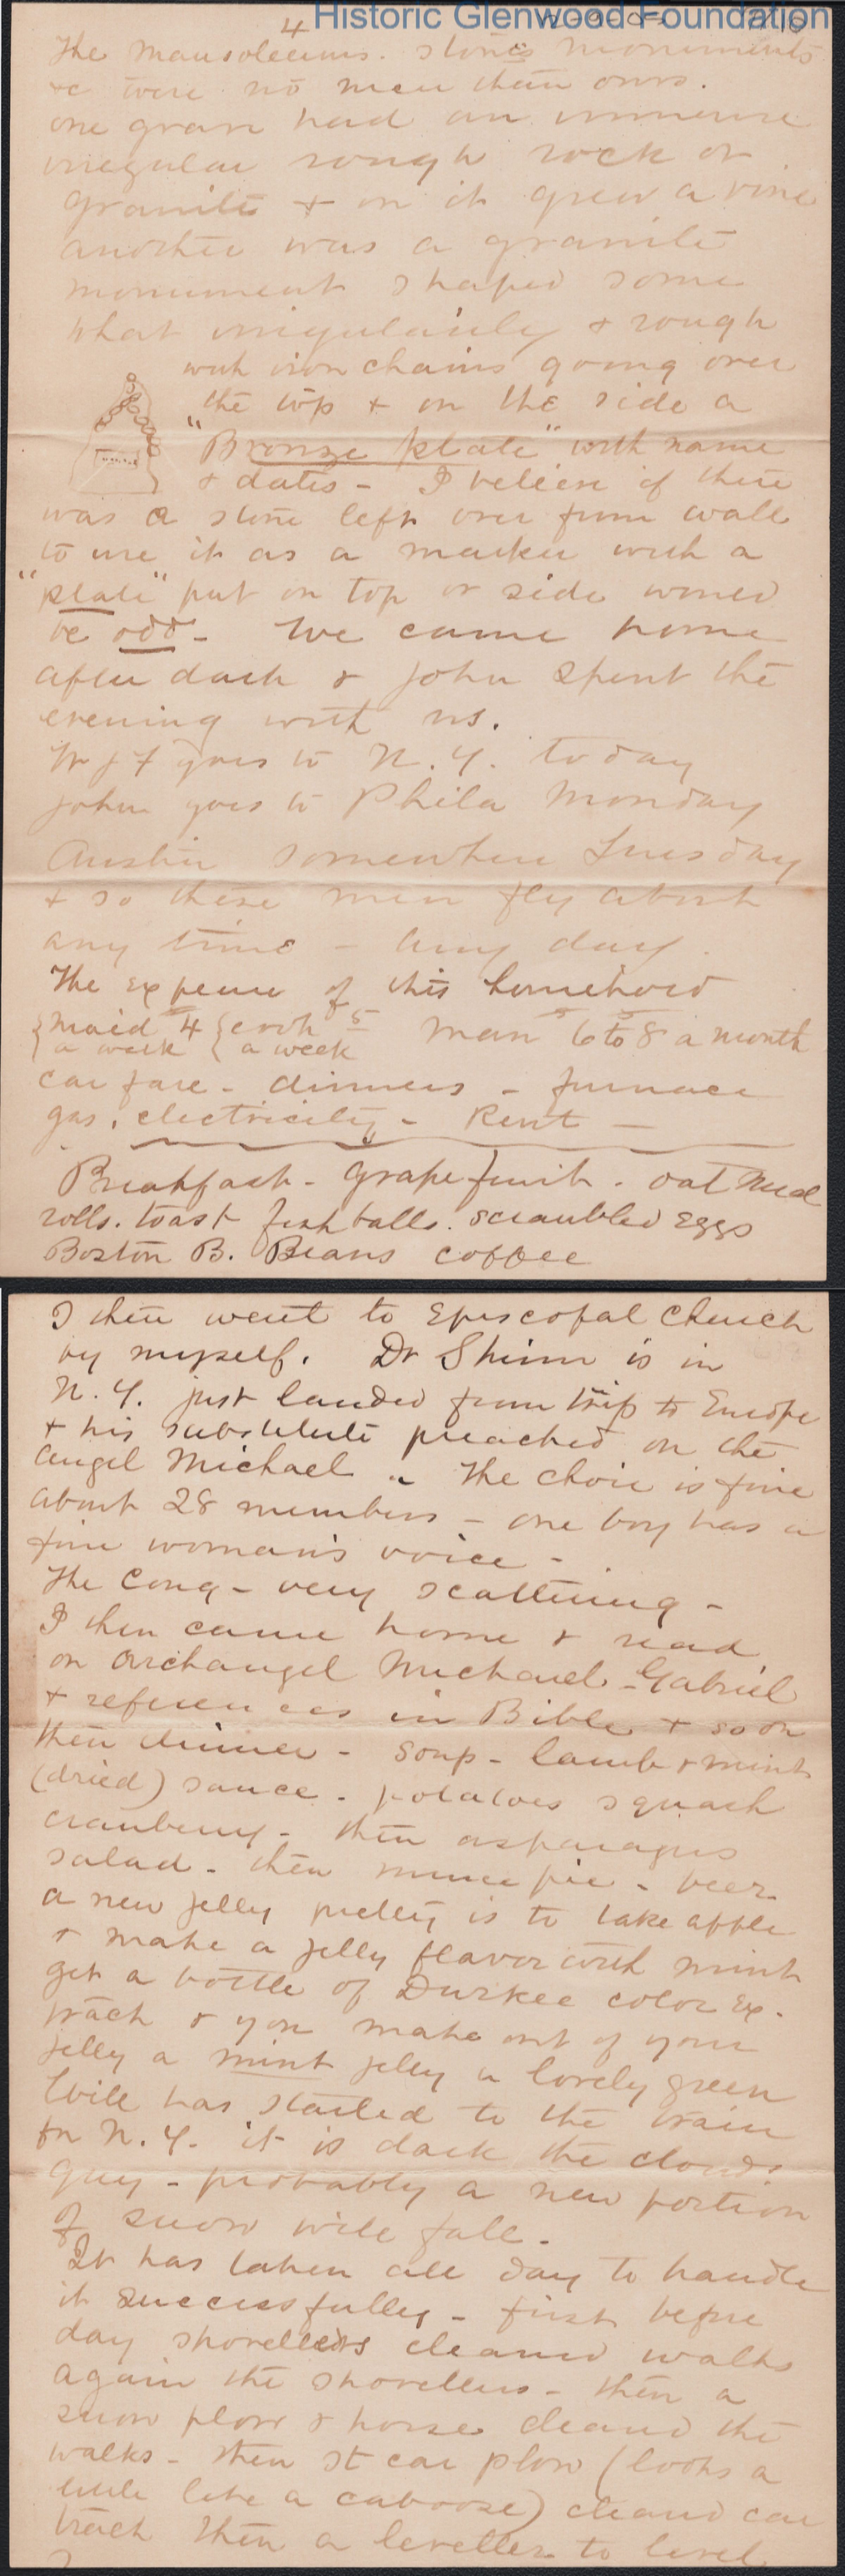 Historic Glenwood Foundation
4
The Mausoleums. stones monuments
&c were no more than ours.
one grave had an immense
irregular rough rock or
granite & on it grew a vine
another was a granite
monument shaped some
what irregularily & rough
with iron chains going over
the top & on the side a
"Bronze plate" with name
& dates - I believe if there
was a stone left over from wall
to use it as a marker with a
"plate" put on top or side would
be odd - We came home
after dark & John spent the
evening with us.
goes to N. Y. today
John goes to Phila Monday
Austin somewhere Tuesday
& so these men fly about
any time - any day.
The expense of this household
{maid 4 {cook 5 man 6 to 8 a month
{a week {a week
car fare - dinners - furnace
gas, electricity - Rent -
Breakfast - grape fruit - oat meal
rolls. toast fish balls. scrambled eggs
Boston B. Beans coffee
I then went to Episcopal Church
by myself. Dr Shinn is in
N. Y. just landed from trip to Europe
& his substitute preached on the
angel Michael. The choir is fine
about 28 members - one boy has a
fine woman's voice -
The Cong - very scattering -
I then came home & read
on Archangel Michael - Gabriel
& references in Bible & so on
then dinner - soup - lamb & mint
(dried) sauce - potatoes squash
cranberry - then asparagus
salad - then mince pie - beer
a new jelly pretty is to take apple
& make a jelly flavor with mint
get a bottle of Durkee color ex-
tract & you make out of your
jelly a mint jelly a lovely green
Will has started to the train
for N. Y. it is dark the clouds
grey - probably a new portion
of snow will fall -
It has taken all day to handle
it successfully - first before
day shovellers cleaned walks
again the shovellers - then a
snow plow & horse cleaned the
walks - then st car plow (looks a
little like a caboose) cleaned car
track then a leveller to level